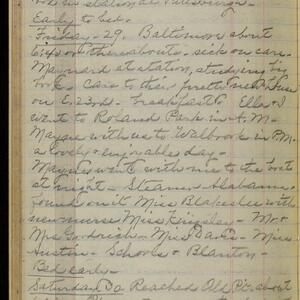 station at Pittsburgh -
Early to bed.
Friday - 29. Baltimore about
6:40 or thereabouts - sick on cars -
Maynard at station, studying big
Cars to their pretty new house
on E. 23rd - breakfast & Ella & I
went to Roland Park in A.M.
Maysie with us to Walbrook in P.M.
a lovely & enjoyable day -
went with me to the boat
at night - Steamer Alabama
found on it Miss Blakeslee with
new nurse Miss Kingsley - Mr. &
Mrs Goodrich - Miss Davis - Miss
Austin - Schools & Blanton -
Bed early -
Saturday 30 Reached Old Pt. about